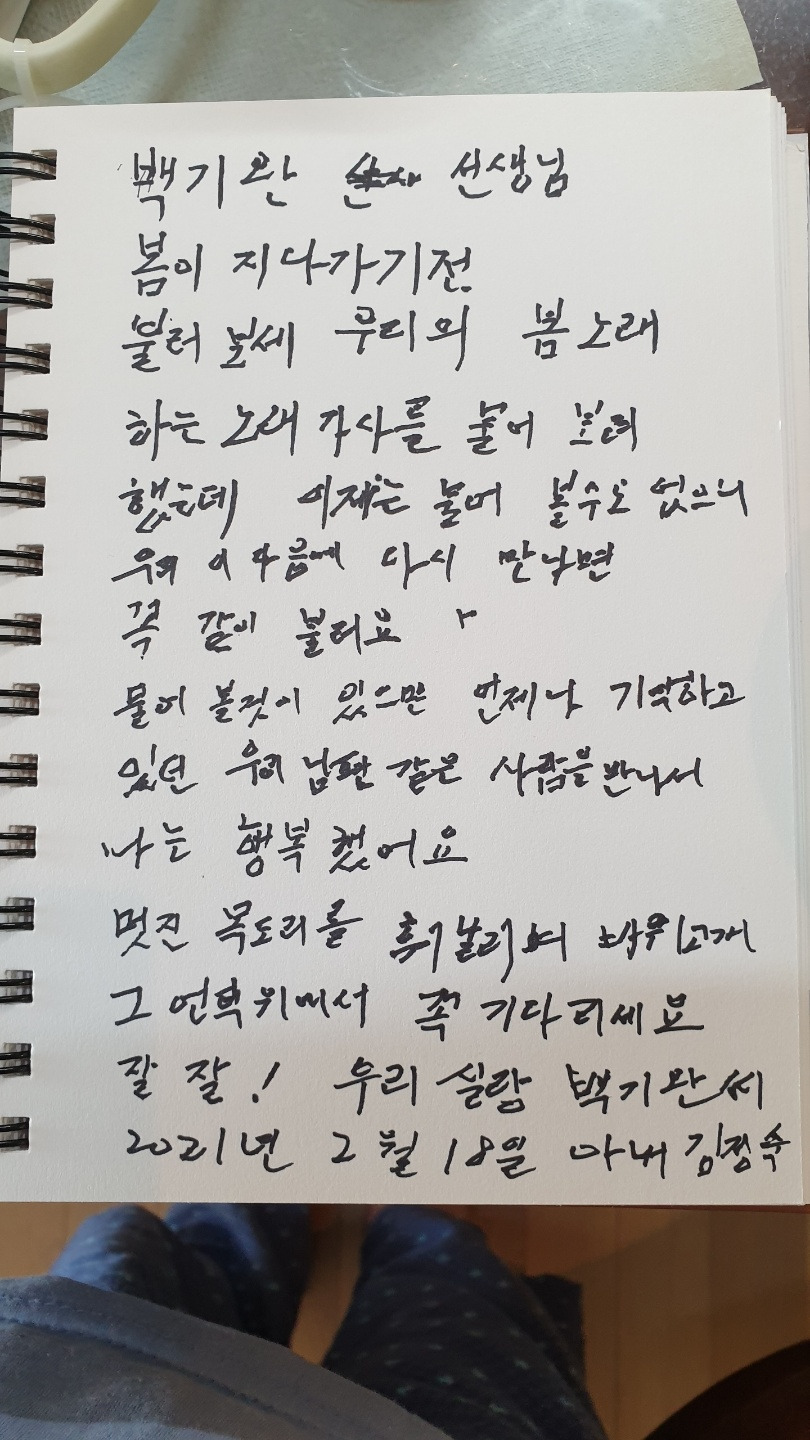 백기완 선생님
봄이 지나가기전
불러 보세 우리의 봄노래
하는 노래 가사를 물어 보려
했는데 이제는 물어 볼수도 없으니
우리 이 다음에 다시 만나면
꼭 같이 불러요
물어 볼것이 있으면 언제나 기억하고
있던 우리 남편 같은 사람을 만나서
나는 행복했어요
멋진 목도리를 휘날리며 바위고개
그 언덕위에서 꼭 기다리세요
잘 잘! 우리 실랑 백기완씨
2021년 2월 18일 아내 김정숙